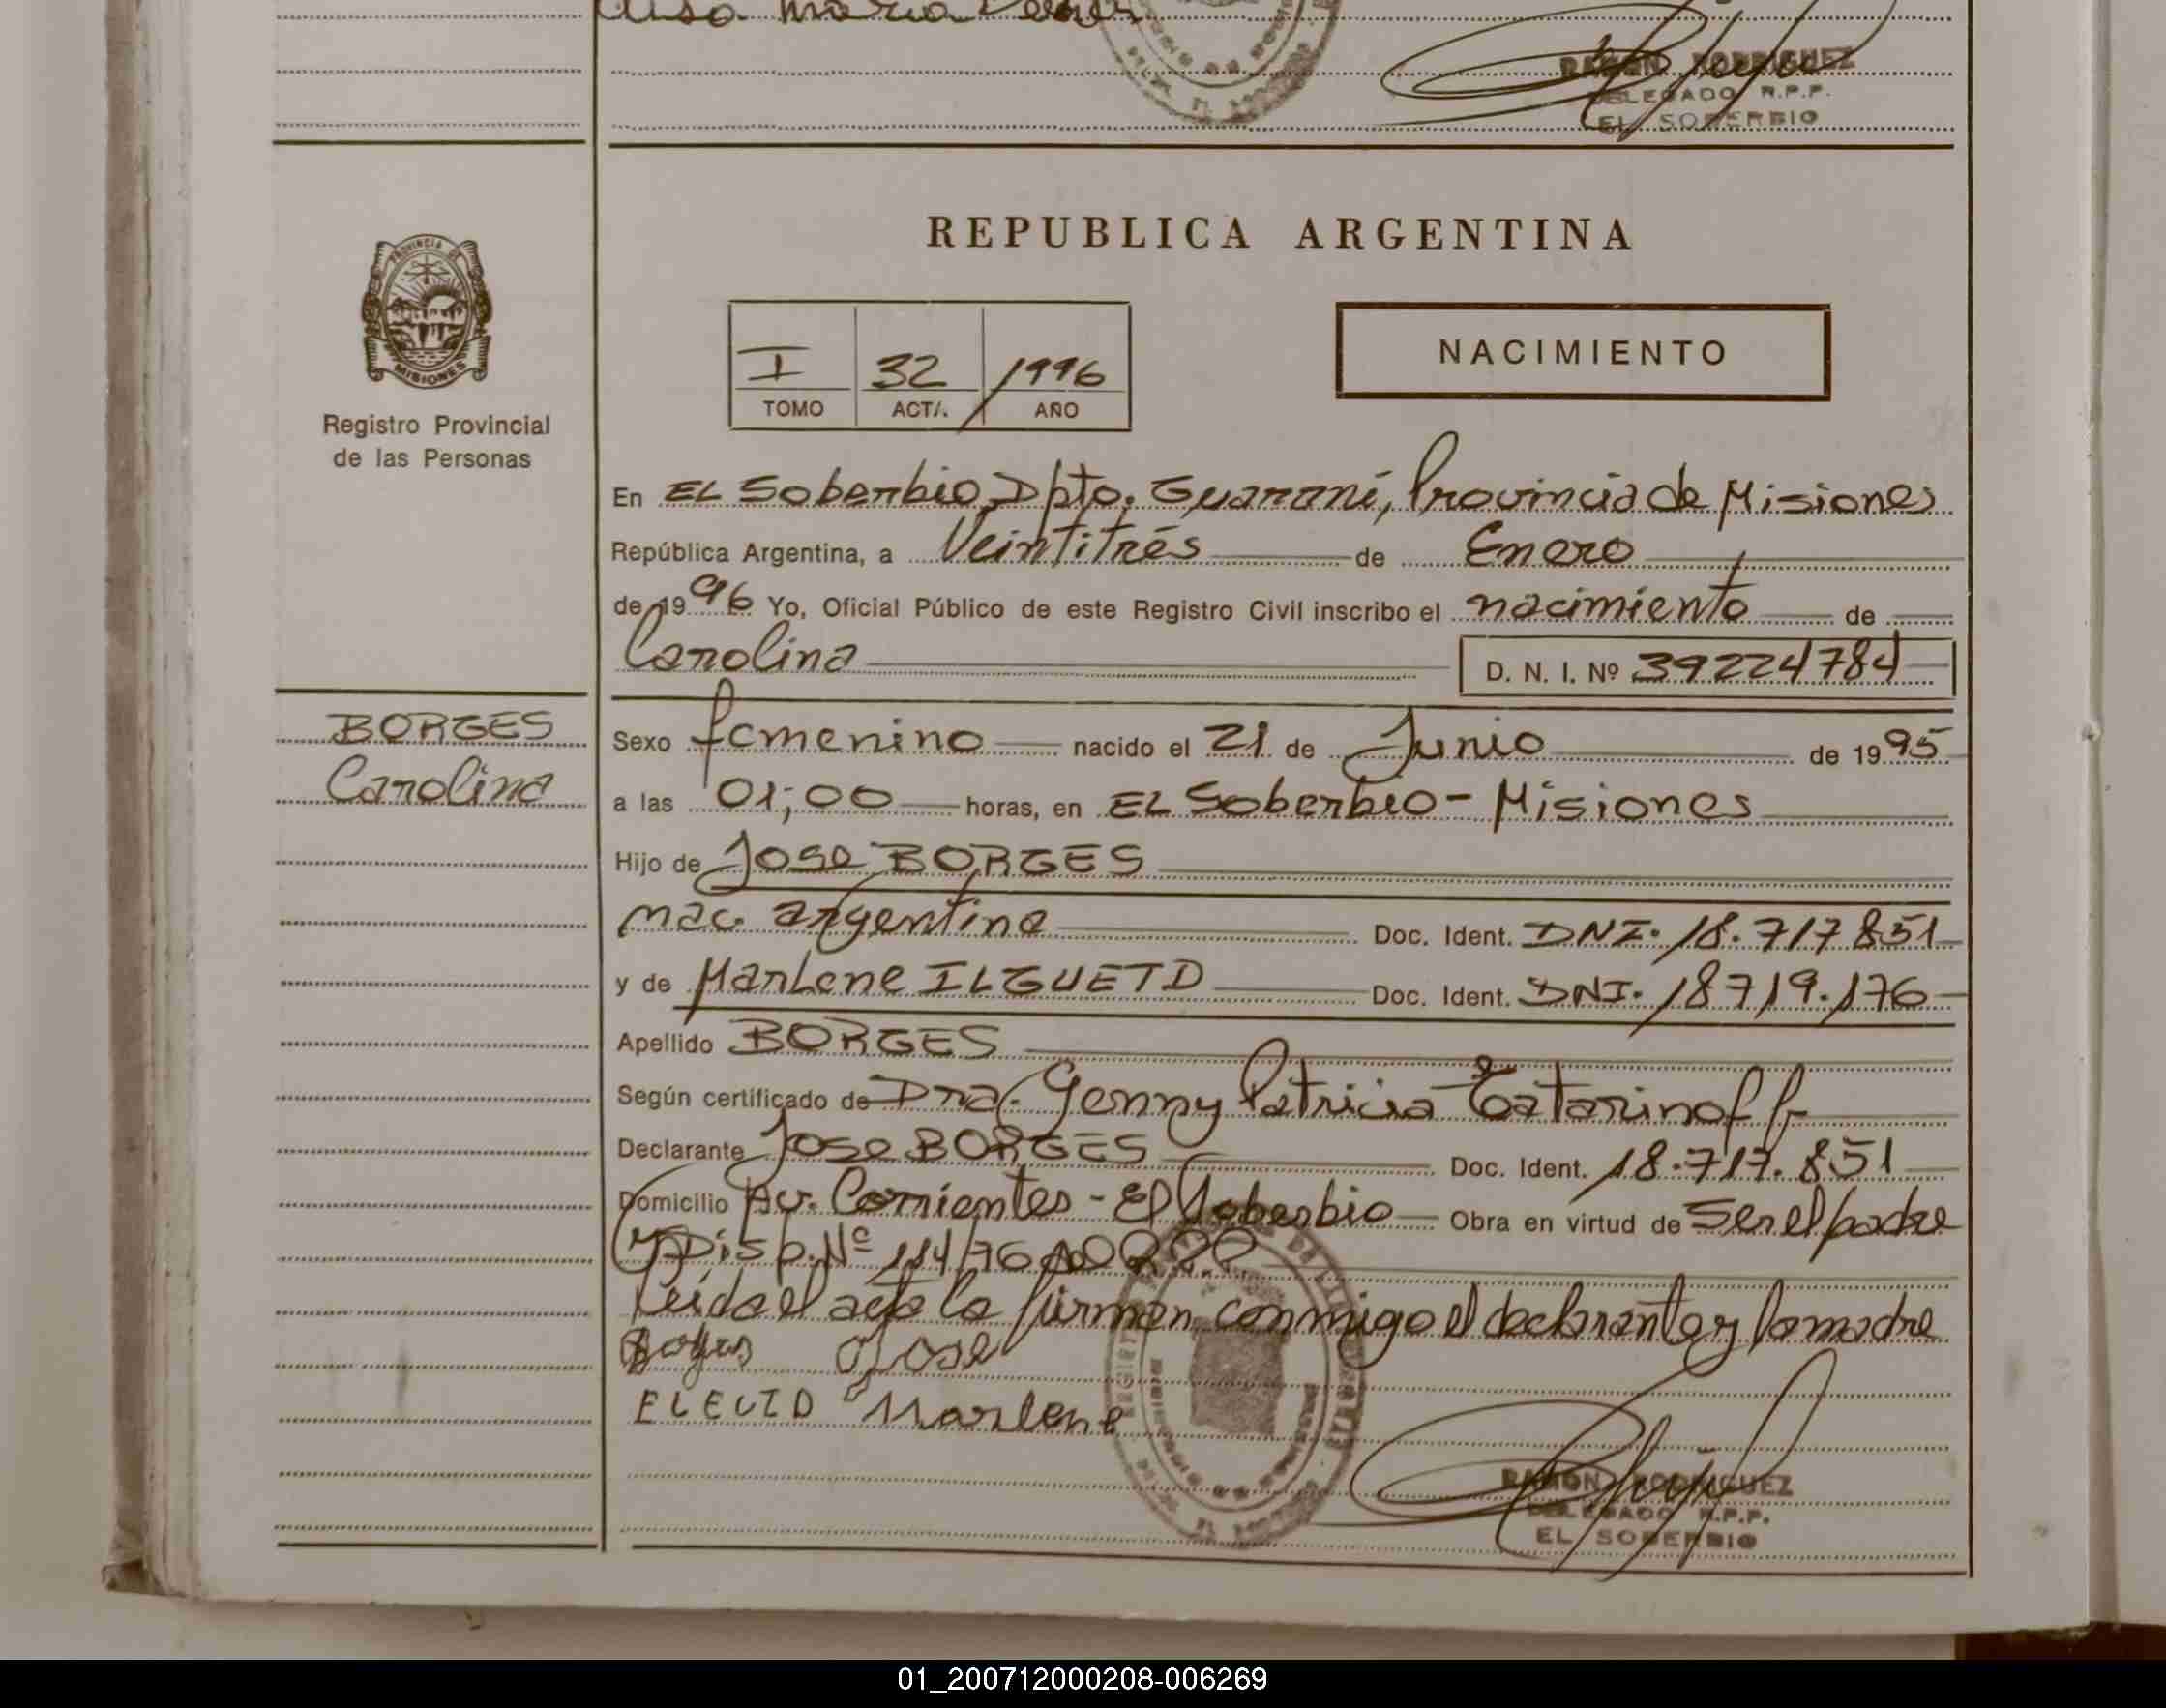 RAMON RODRIGUEZ
DELEGADO R.P.P.
EL SOBERBIO
PROVINCIA DE
MISIONES
Registro Provincial
de las Personas
REPUBLICA ARGENTINA
I 32 1996
TOMO ACTA. AÑO
NACIMIENTO
En EL Soberbio, Dpto. Guaraní, Provincia de Misiones
República Argentina, a Veintitrés de Enero
de 1996 Yo, Oficial Público de este Registro Civil inscribo el nacimiento de
Carolina D. N. I. Nº 39224784
BORGES
Carolina
Sexo femenino nacido el 21 de Junio de 1995
a las 01;00 horas, en EL Soberbio - Misiones
Hijo de Jose BORGES
nac. argentina Doc. Ident. DNI. 18.717851
y de Marlene ILGUETD Doc. Ident. DNI. 18719.176
Apellido BORGES
Según certificado de Dra. Genny Patricia Tatarinoff
Declarante Jose BORGES Doc. Ident. 18.717.851
Domicilio Av. Corrientes - El Soberbio Obra en virtud de Ser el padre
y Disp. Nº 114/76
Leída el acta la firman conmigo el declarante y la madre
Jose
Marlene
RAMON RODRIGUEZ
DELEGADO R.P.P.
EL SOBERBIO
01_200712000208-006269